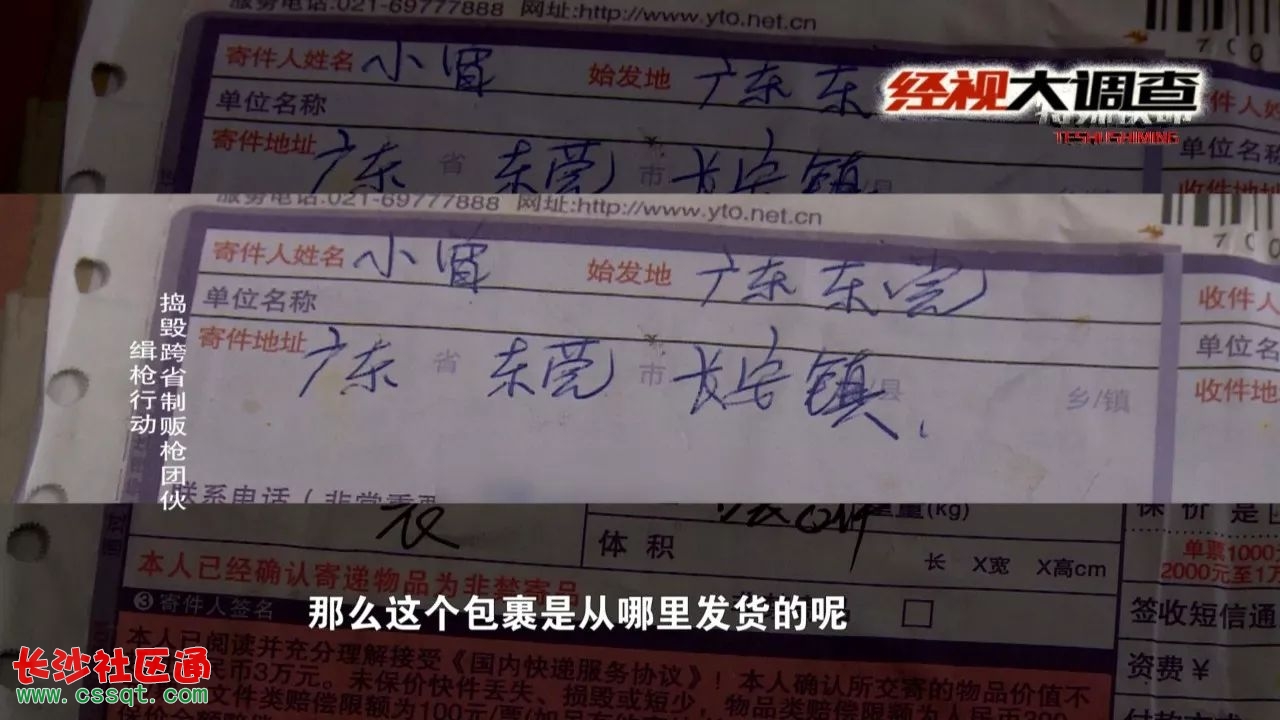 服务电话:021-69777888 网址:http://www.yto.net.cn
寄件人姓名 小 始发地 广东 东
经视大调查
TESHUSHIMING
件人
单位名称
单位名称
寄件地址 广东 省 东莞 市 长安镇 县
服务电话:021-69777888 网址:http://www.yto.net.cn
寄件人姓名 小 始发地 广东 东莞
收件人
单位名称
单位名
寄件地址 广东 省 东莞 市 长安镇 /县 乡/镇
收件地
捣毁跨省制贩枪团伙
缉枪行动
联系电话(非常重要
重量(kg)
体 积
长 X宽 X高cm
保 价 是
单票1000
2000元至1万
本人已经确认寄递物品为非禁寄品
❸寄件人签名
签收短信通
那么这个包裹是从哪里发货的呢
本人已阅读并充分理解接受《国内快递服务协议》!本人确认所交寄的物品价值不
民币3万元。未保价快件丢失、损毁或短少,
文件类赔偿限额为100元/票
物品类赔偿限额为人民币300
资费¥
长沙社区通
www.cssqt.com